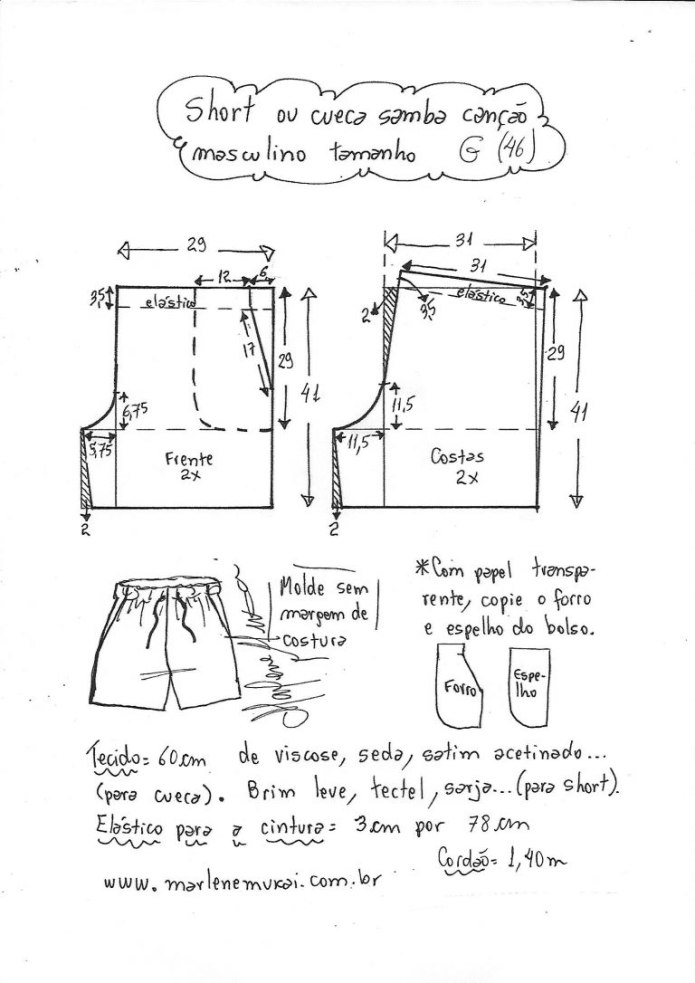 Short ou cueca samba canção
masculino tamanho G (46)
29
12
6
3,5
elástico
17
29
41
6,75
5,75
Frente
2x
2
31
31
elástico
3,5
3,5
2
29
41
11,5
11,5
Costas
2x
2
Molde sem
margem de
costura
*Com papel transpa-
rente, copie o forro
e espelho do bolso.
Forro
Espe-
lho
Tecido = 60 cm de viscose, seda, satim acetinado...
(para cueca). Brim leve, tectel, sarja...(para short).
Elástico para a cintura = 3 cm por 78 cm
Cordão = 1,40 m
www.marlenemukai.com.br